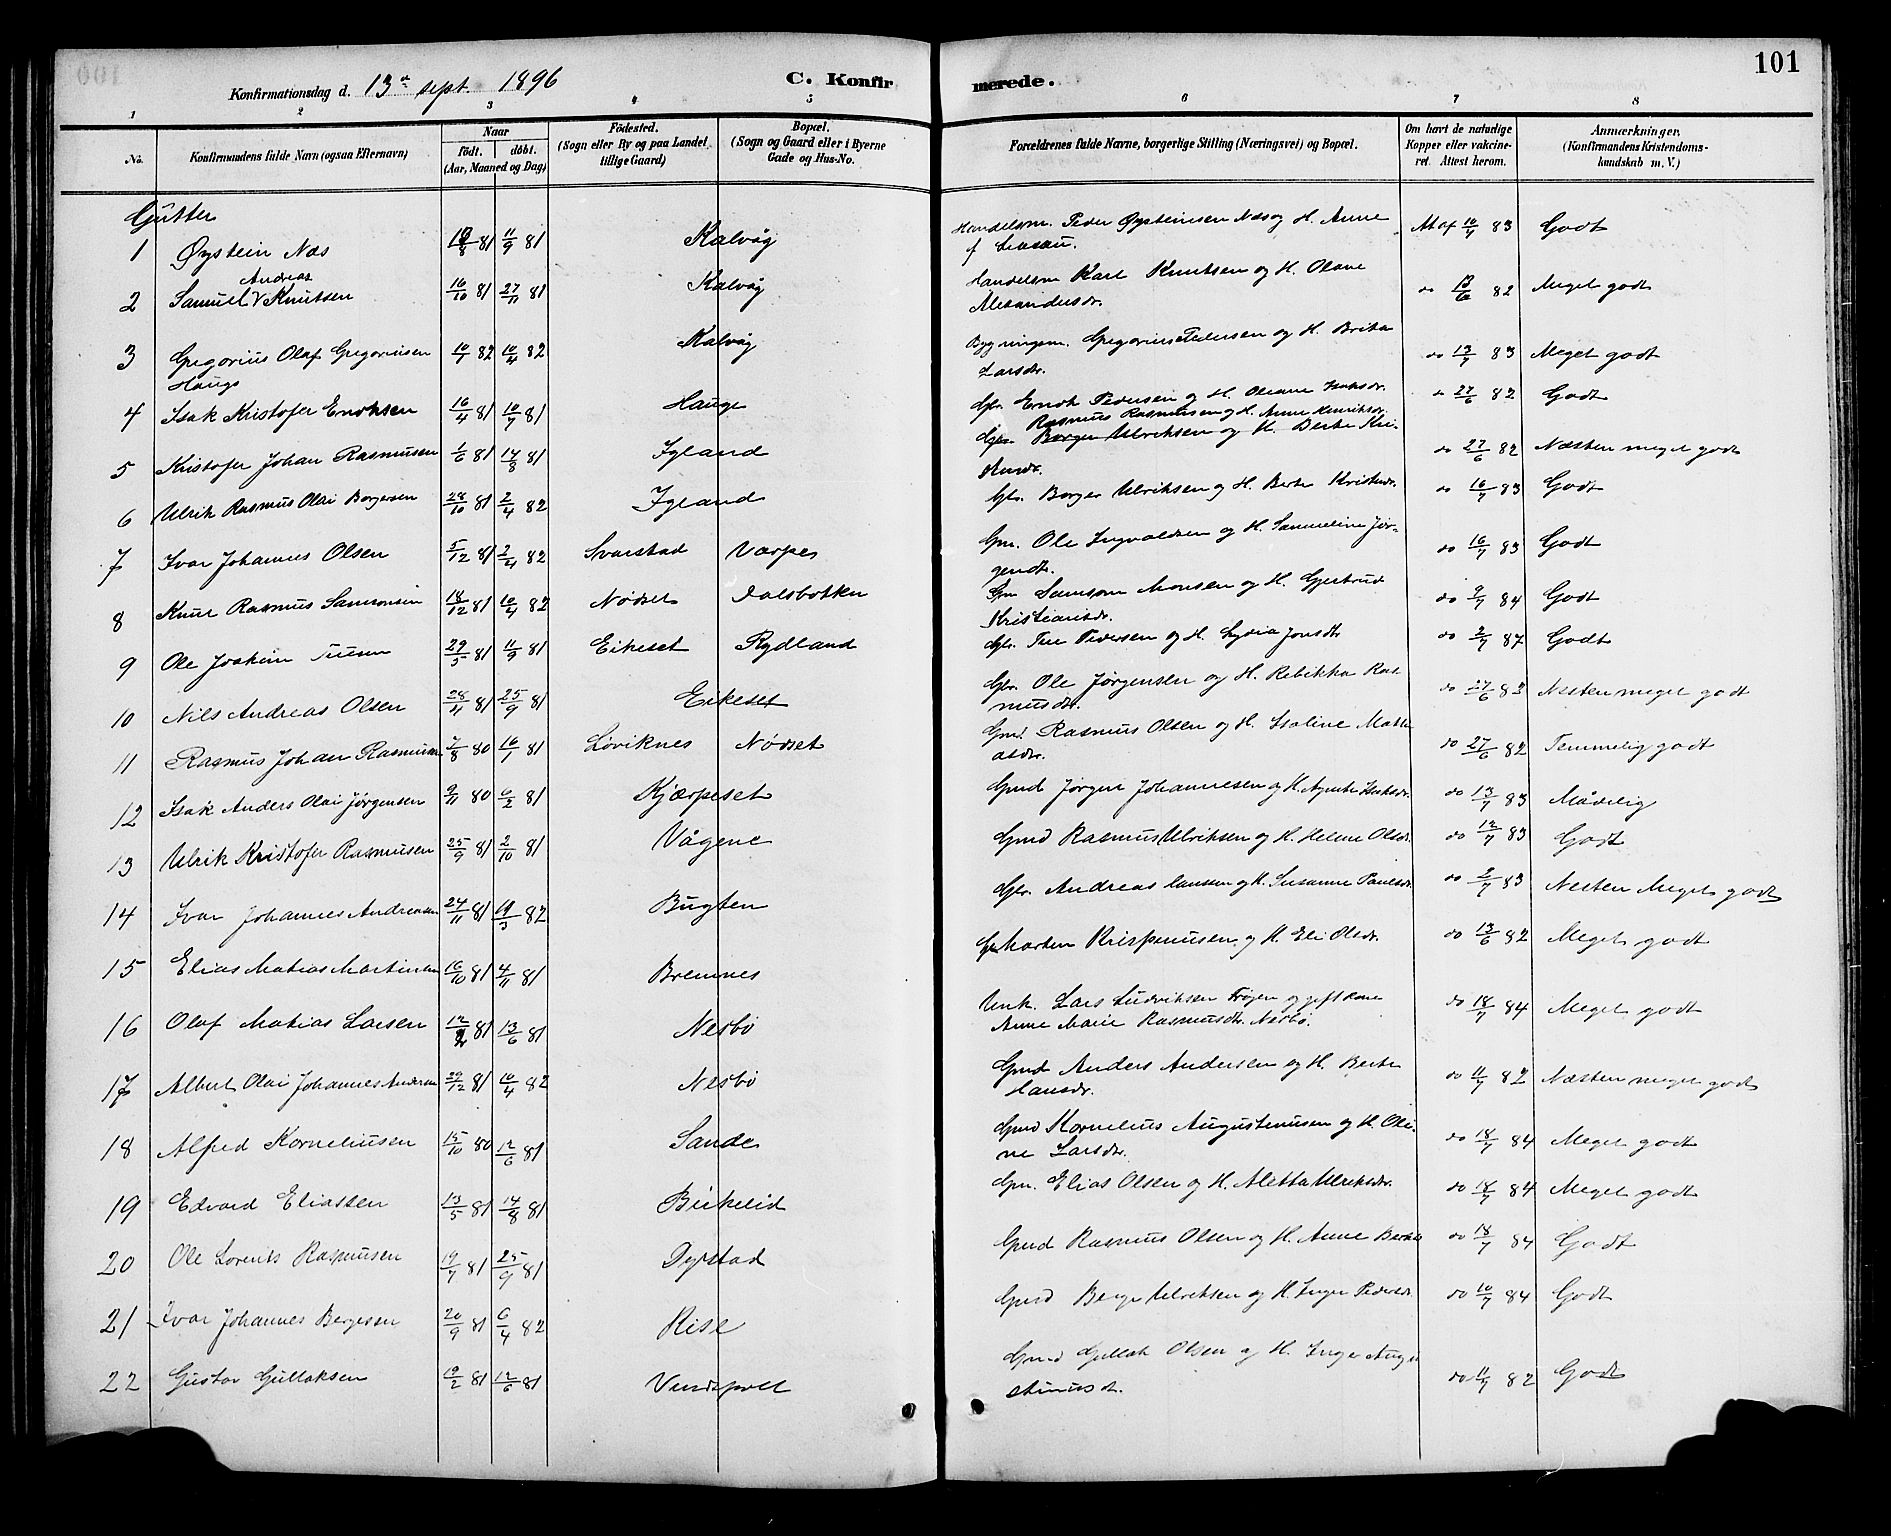 101
Konfirmationsdag d. 13de sept. 1896
C. Konfirmerede.
1 2 3 4 5 6 7 8
No. Konfirmandens fulde Navn (ogsaa Efternavn) Naar födt. döbt. (Aar, Maaned og Dag) Födested. (Sogn eller By og paa Landet tillige Gaard) Bopæl. (Sogn og Gaard eller i Byerne Gade og Hus-No. Forældrenes fulde Navne, borgerlige Stilling (Næringsvei) og Bopæl. Om havt de naturlige Kopper eller vakcineret. Attest herom. Anmærkninger. (Konfirmandens Kristendomskundskab m. V.)
Gutter
1 Øystein Næs 81 11/9 81 Kalvåg Handelsm. Peder Øysteinsen Næs og H. Anne At af 10/7 83 Godt
2 Samuel Andreas Knutsen 16/10 81 27/11 81 Kalvåg Handelsm Karl Knutsen og H. Olave Alexandersdr. do 82 Meget godt
3 Gregorius Olaf Gregoriusen Haugs 10/1 82 10/4 82 Kalvåg Bygningsm. Gregorius Pedersen og H. Brita Larsdr. do 13/7 83 Meget godt
4 Isak Kristofer Enoksen 16/4 81 10/7 81 Hauge Gbr. Enok Pedersen og H. Oleane Isaksdr. do 27/6 82 Godt
5 Kristofer Johan Rasmusen 1/6 81 14/8 81 Igland Rasmus Rasmusen og H. Anne Henriksdr. Borger Ulriksen og H. Berte Kri- do 27/6 82 Næsten meget godt
6 Ulrik Rasmus Olai Borgersen 28/10 81 2/4 82 Igland Gbr. Borger Ulriksen og H. Berte Kristensdr. do 16/7 83 Godt
7 Ivar Johannes Olsen 5/12 81 2/4 82 Svarstad Varpes Gm. Ole Ingvaldsen og H. Sammeline Jørgensdr. do 16/7 83 Godt
8 Knut Rasmus Samsonsen 18/12 81 10/4 82 Nødset Dalsbotten Gm Samson Monsen og H. Gjertrud Kristiansdr. do 9/7 84 Godt
9 Ole Joakim 29/5 81 11/9 81 Eikeset Rydland Gbr. Pedersen og H. Lydia Jonsdr do 2/7 87 Godt
10 Nils Andreas Olsen 81 25/9 81 Eikeset Gbr. Ole Jørgensen og H. Rebikka Rasmusdr. do 27/6 83 Nesten meget godt
11 Rasmus Johan Rasmusen 7/8 80 16/1 81 Løviknes Nødset Gmd Rasmus Olsen og H. do 27/6 82 Temmelig godt
12 Isak Anders Olai Jørgensen 9/11 80 6/2 81 Kjærpeset Gmd Jørgen Johannesen og H. Agnete Isaksdr. do 13/7 83 Mådelig
13 Ulrik Kristofer Rasmusen 25/9 81 2/10 81 Vågene Gmd Rasmus Ulriksen og H. Helene Olsdr. do 12/7 83 Godt
14 Ivar Johannes Andreasen 24/11 81 19/3 82 Bugten Gbr. Andreas Hansen og H. Susanne Paulsdr. do 2/7 83 Nesten Meget godt
15 Elias Matias Martinsen 16/10 81 4/11 81 Bremnes Morten Krispinusen og H. Eli Olsdr. do 13/6 82 Meget godt
16 Olaf Matias Larsen 81 13/6 81 Nesbø Unk. Lars Ludviksen Frøyen og gift kone Anne Marie Rasmusdr. Nesbø. do 18/7 84 Meget godt
17 Albert Olai Johannes Andersen 29/12 81 10/4 82 Nesbø Gmd Anders Andersen og H. Berte Hansdr. do 11/7 82 Næsten meget godt
18 Alfred Korneliusen 15/10 80 12/6 81 Sande Gmd Kornelius Augustinusen og H. Oline Larsdr. do 18/7 84 Meget godt
19 Edvard Eliassen 13/5 81 14/8 81 Birkelid Gm. Elias Olsen og H. Aletta Ulriksdr. do 18/7 84 Meget godt
20 Ole Lorents Rasmusen 19/7 81 25/9 81 Dyrstad Gmd Rasmus Olsen og H. Anne do 18/7 84 Godt
21 Ivar Johannes Bergesen 20/9 81 6/4 82 Rise Gmd Berge Ulriksen og H. Inger Pedersdr do 10/7 84 Godt
22 Gustav Gullaksen 19/2 81 12/6 81 Gmd Gullak Olsen og H. Inger Augustinusdr. do 11/7 82 Godt